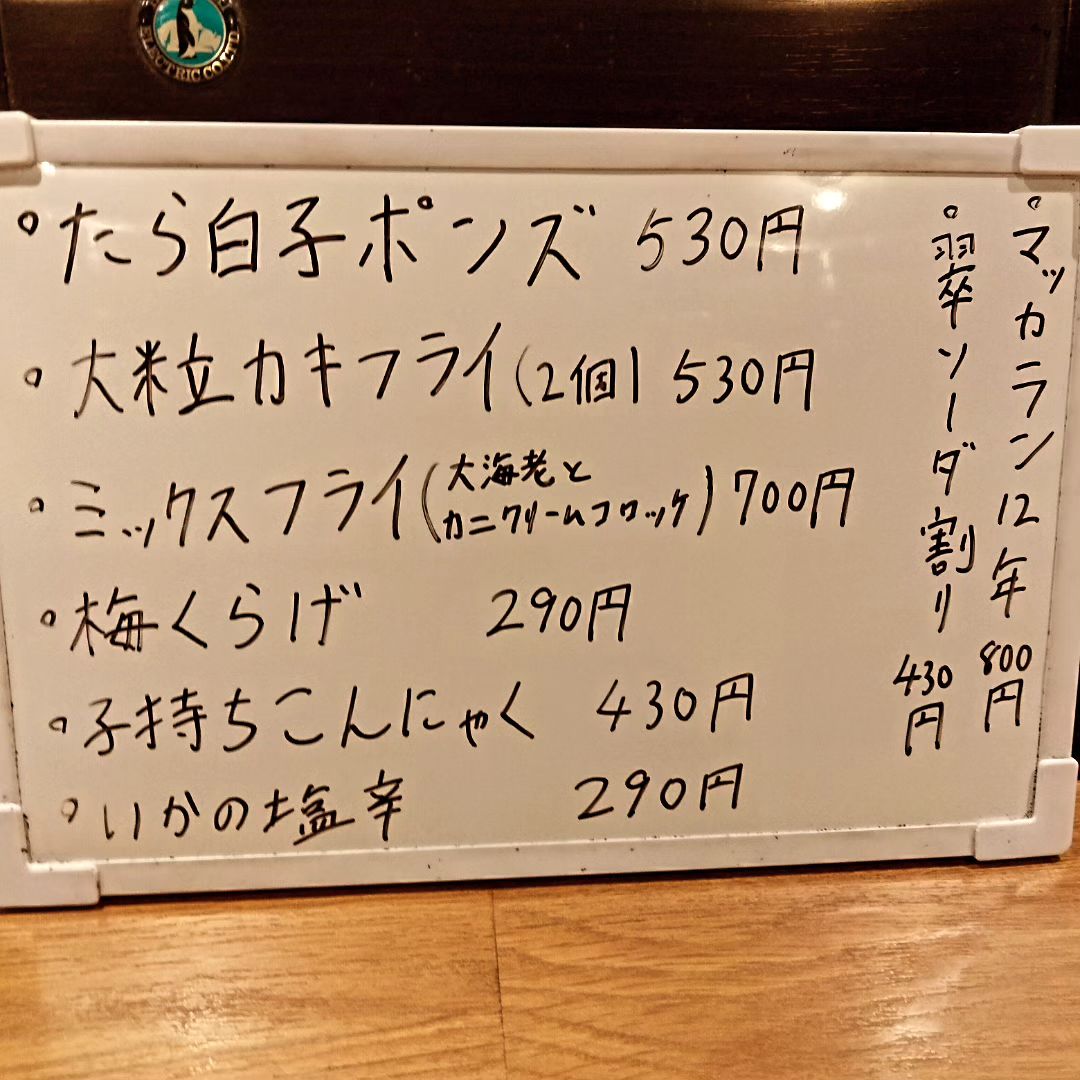 ELECTRIC CO.LTD.
たら白子ポンズ 530円
大粒カキフライ(2個) 530円
ミックスフライ(大海老とカニクリームコロッケ) 700円
梅くらげ 290円
子持ちこんにゃく 430円
いかの塩辛 290円
マッカラン12年 800円
翠ソーダ割り 430円